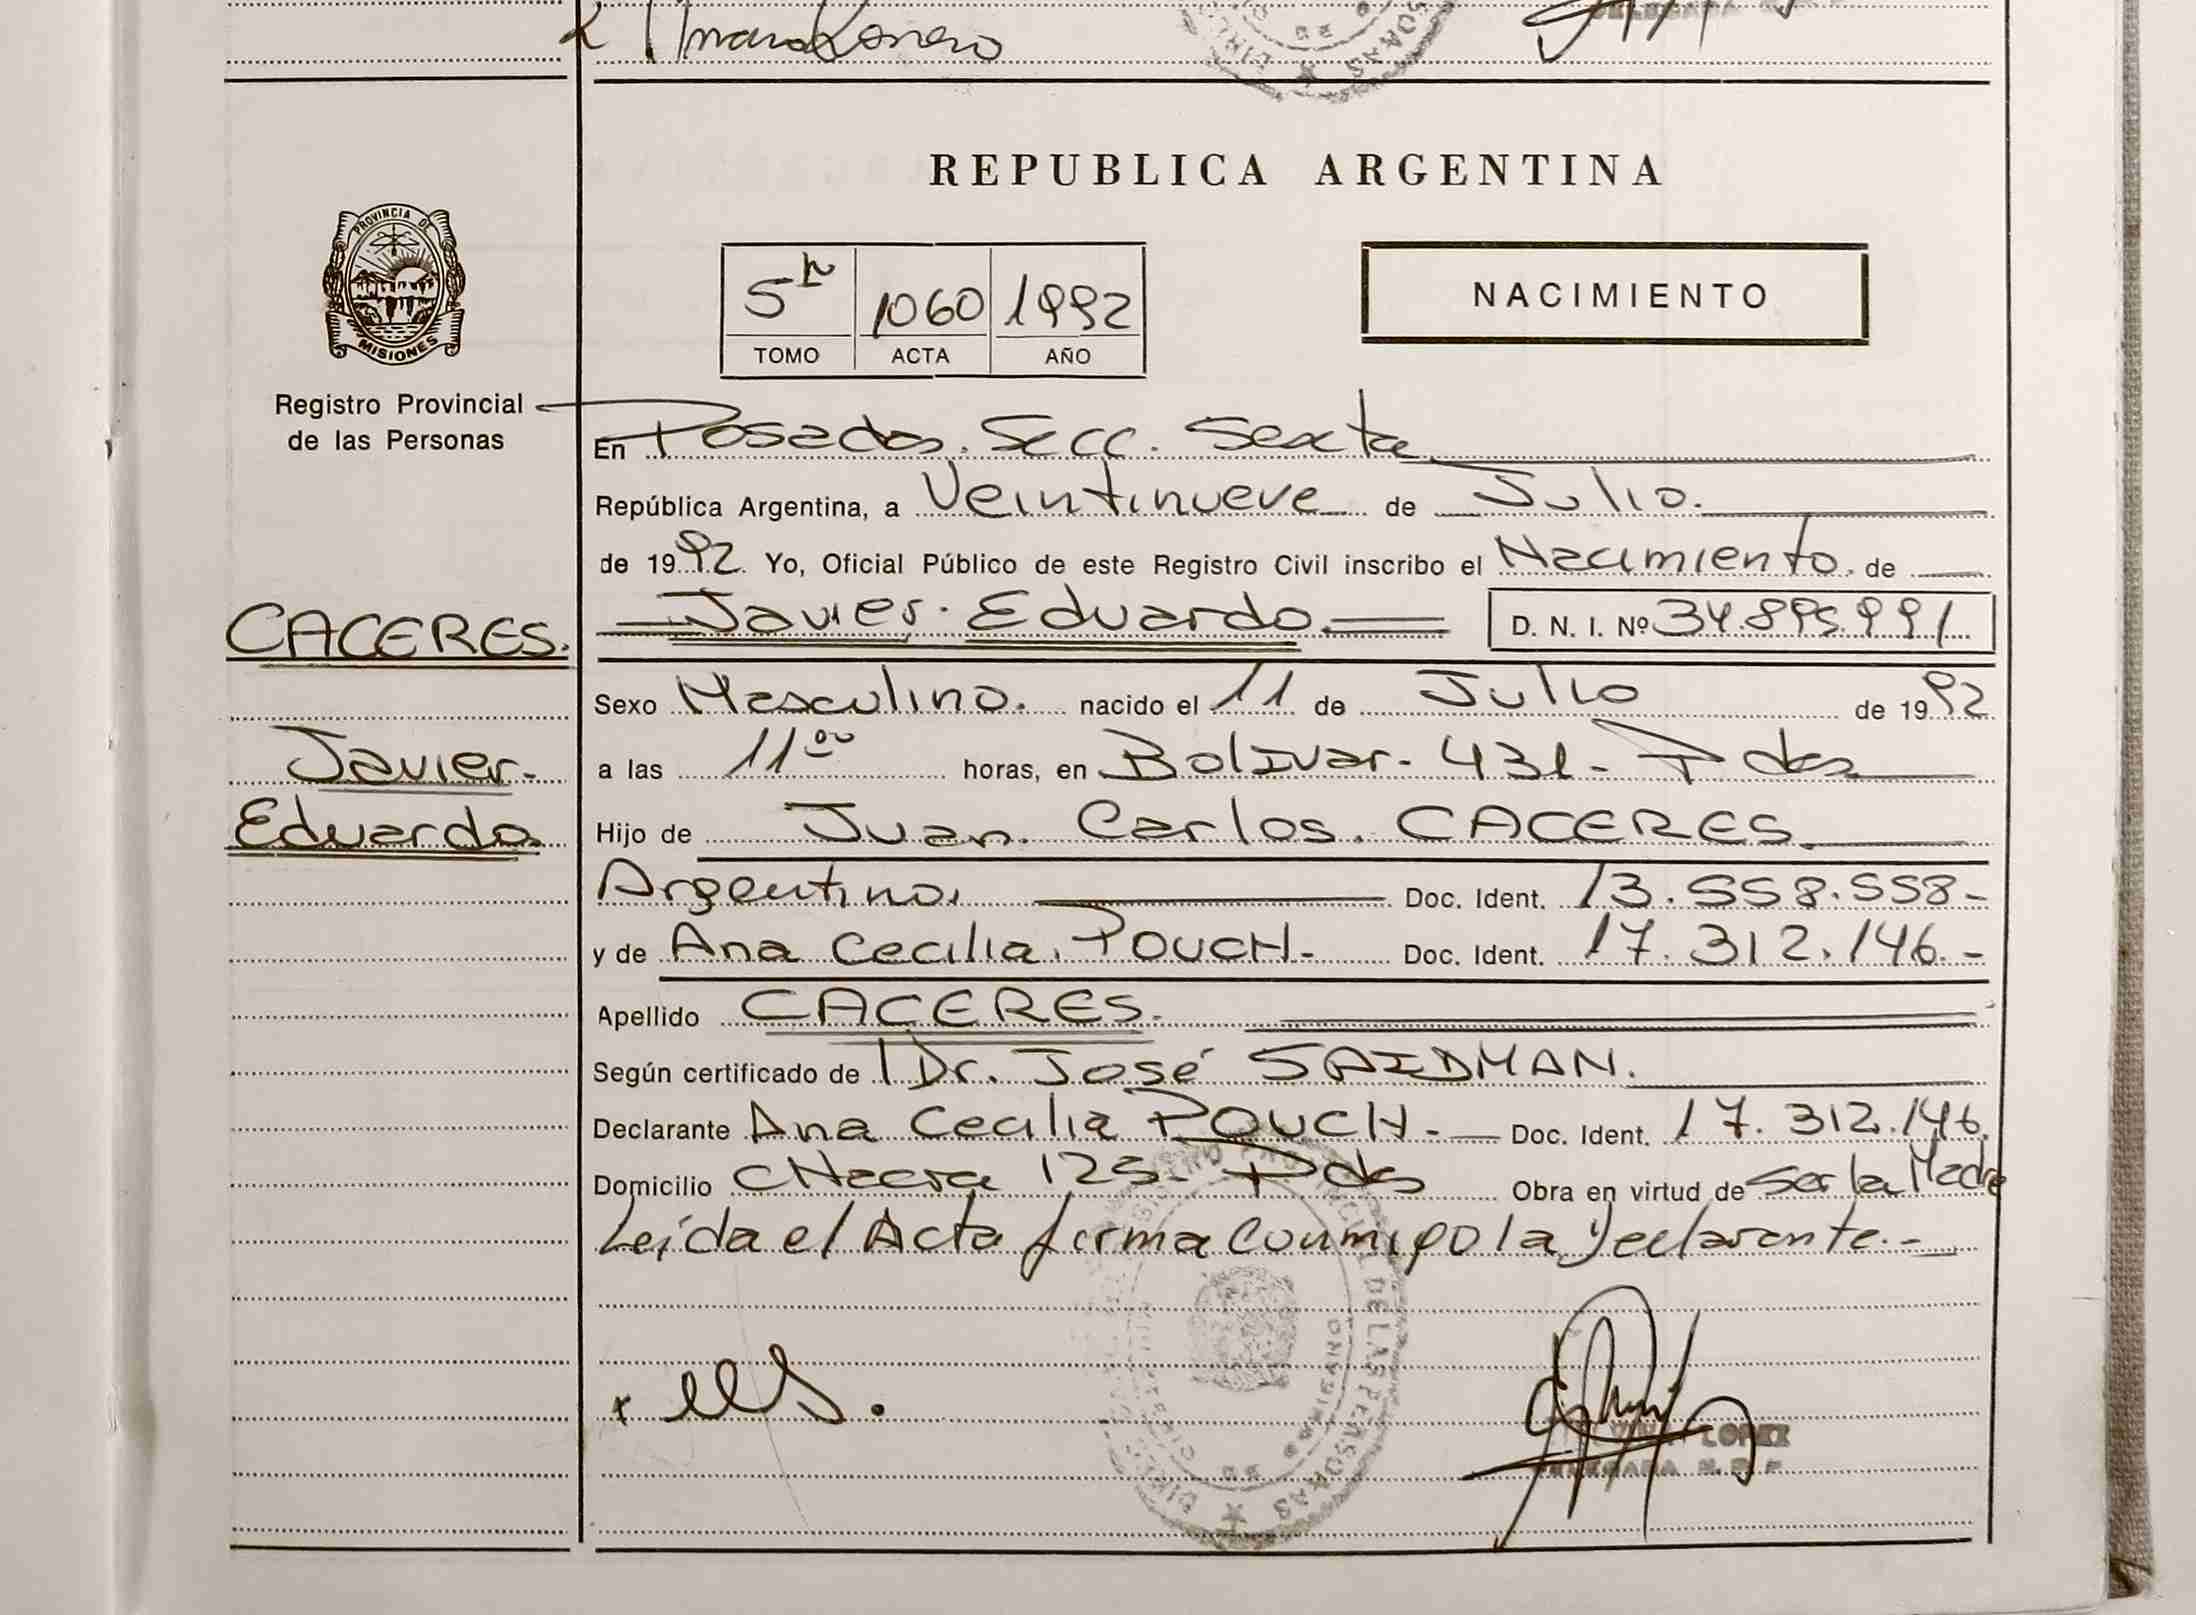 PROVINCIA DE
MISIONES
Registro Provincial
de las Personas
CACERES.
Javier
Eduardo
REPUBLICA ARGENTINA
5 1060 1992
TOMO ACTA AÑO
NACIMIENTO
En Posadas. Secc. Sexta
República Argentina, a Veintinueve de Julio.
de 1992. Yo, Oficial Público de este Registro Civil inscribo el Nacimiento. de
Javier. Eduardo. D. N. I. Nº 34.895.991
Sexo Masculino. nacido el 11 de Julio de 1992
a las 11⁰⁰ horas, en Bolivar. 431 - Pdas
Hijo de Juan Carlos. CACERES.
Argentino. Doc. Ident. 13.558.558-
y de Ana Cecilia. POUCH. Doc. Ident. 17.312.146.-
Apellido CACERES.
Según certificado de Dr. José SAIDMAN.
Declarante Ana Cecilia POUCH. Doc. Ident. 17.312.146.
Domicilio CHacra 125. Pdas Obra en virtud de Ser la Madre
Leída el Acta firma conmigo la Declarante.-
LOPEZ
DELEGADA